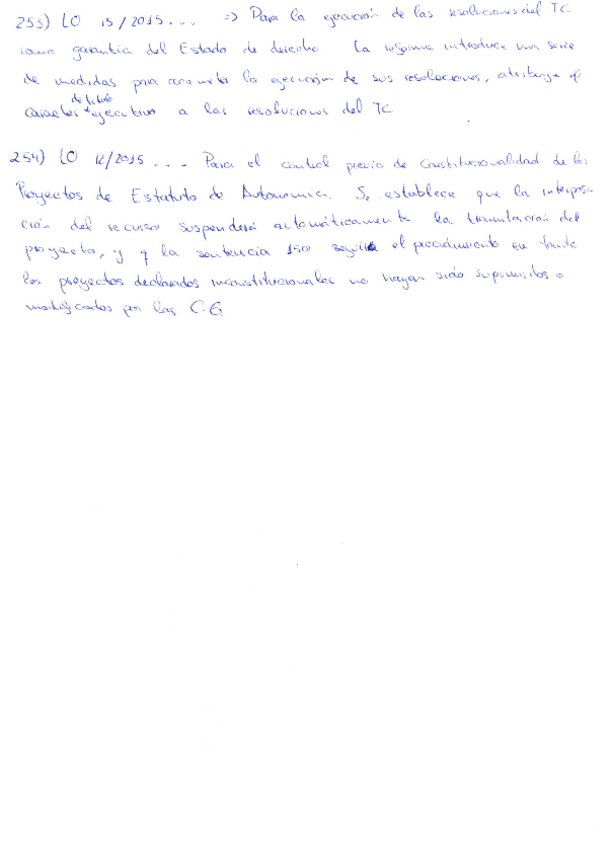 253) LO 15/2015... => Para la ejecución de las resoluciones del TC
como garantía del Estado de derecho. La reforma introduce una serie
de medidas para acometer la ejecución de sus resoluciones, atribuye el
carácter de título ejecutivo a las resoluciones del TC
254) LO 12/2015... Para el control previo de Constitucionalidad de los
Proyectos de Estatuto de Autonomía. Se establece que la interposi
ción del recurso suspenderá automáticamente la tramitación del
proyecto, y q la sentencia no seguirá el procedimiento en tanto
los proyectos declarados inconstitucionales no hayan sido suprimidos o
modificados por las C.G.